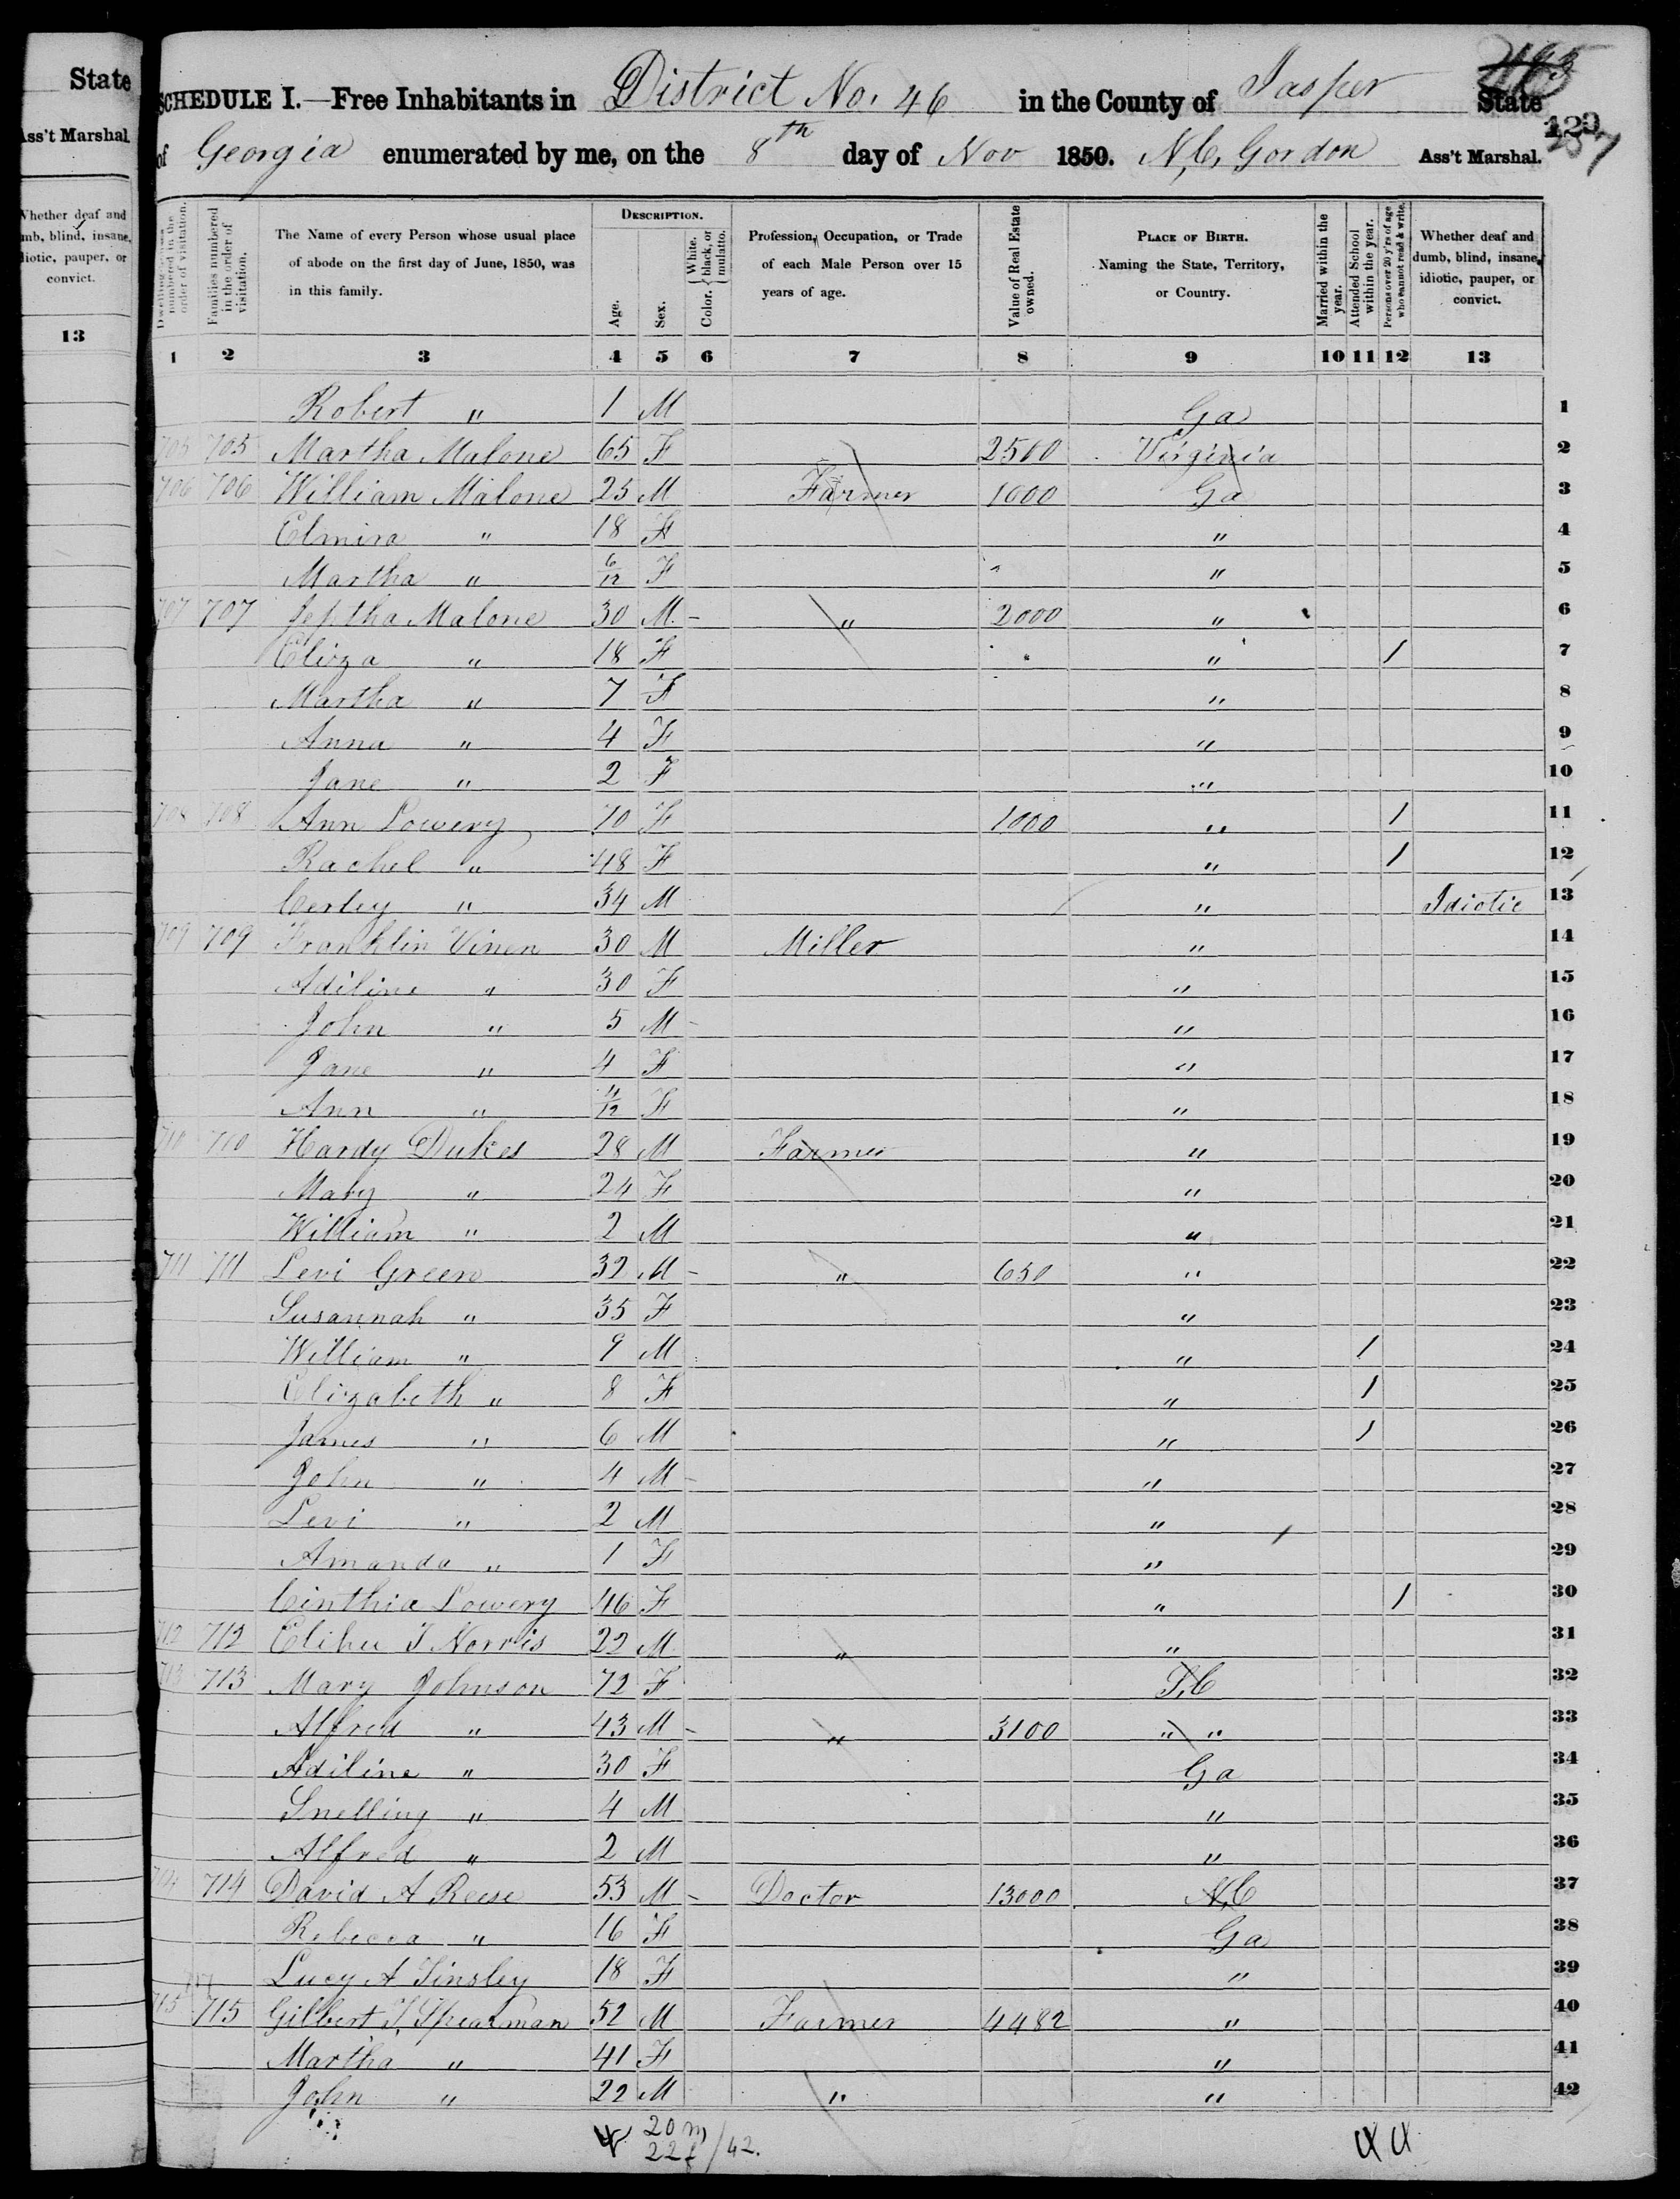 State
Ass't Marshal.
Whether deaf and
dumb, blind, insane,
idiotic, pauper, or
convict.
13
SCHEDULE I.—Free Inhabitants in District No. 46 in the County of Jasper State
of Georgia enumerated by me, on the 8th day of Nov 1850. N.C. Gordon Ass't Marshal.
Dwelling-houses numbered in the order of visitation.
Families numbered in the order of visitation.
The Name of every Person whose usual place of abode on the first day of June, 1850, was in this family.
DESCRIPTION.
Age.
Sex.
Color. { White, black, or mulatto.
Profession, Occupation, or Trade of each Male Person over 15 years of age.
Value of Real Estate owned.
PLACE OF BIRTH. Naming the State, Territory, or Country.
Married within the year.
Attended School within the year.
Persons over 20 y'rs of age who cannot read & write.
Whether deaf and dumb, blind, insane, idiotic, pauper, or convict.
1 2 3 4 5 6 7 8 9 10 11 12 13
Robert " 1 M Ga 1
705 705 Martha Malone 65 F 2500 Virginia 2
706 706 William Malone 25 M Farmer 1000 Ga 3
Elmira " 18 F " 4
Martha " 6/12 F " 5
707 707 Jeptha Malone 30 M " 2000 " 6
Eliza " 18 F " 1 7
Martha " 7 F " 8
Anna " 4 F " 9
Jane " 2 F " 10
708 708 Ann Lowery 70 F 1000 " 1 11
Rachel " 48 F " 1 12
Cerley " 34 M " Idiotic 13
709 709 Franklin Vinen 30 M Miller " 14
Adiline " 30 F " 15
John " 5 M " 16
Jane " 4 F " 17
Ann " 4/12 F " 18
710 710 Hardy Dukes 28 M Farmer " 19
Mary " 24 F " 20
William " 2 M " 21
711 711 Levi Green 32 M " 650 " 22
Susannah " 35 F " 23
William " 9 M " 1 24
Elizabeth " 8 F " 1 25
James " 6 M " 1 26
John " 4 M " 27
Levi " 2 M " 28
Amanda " 1 F " 29
Cinthia Lowery 46 F " 1 30
712 712 Elihu J Norris 22 M " " 31
713 713 Mary Johnson 72 F S.C 32
Alfred " 43 M " 3100 " " 33
Adiline " 30 F Ga 34
Snelling " 4 M " 35
Alfred " 2 M " 36
714 714 David A Reese 53 M Doctor 13000 N.C 37
Rebecca " 16 F Ga 38
Lucy A Tinsley 18 F " 39
715 715 Gilbert T, Spearman 52 M Farmer 4482 " 40
Martha " 41 F " 41
John " 22 M " " 42
20 m
22 f / 42.